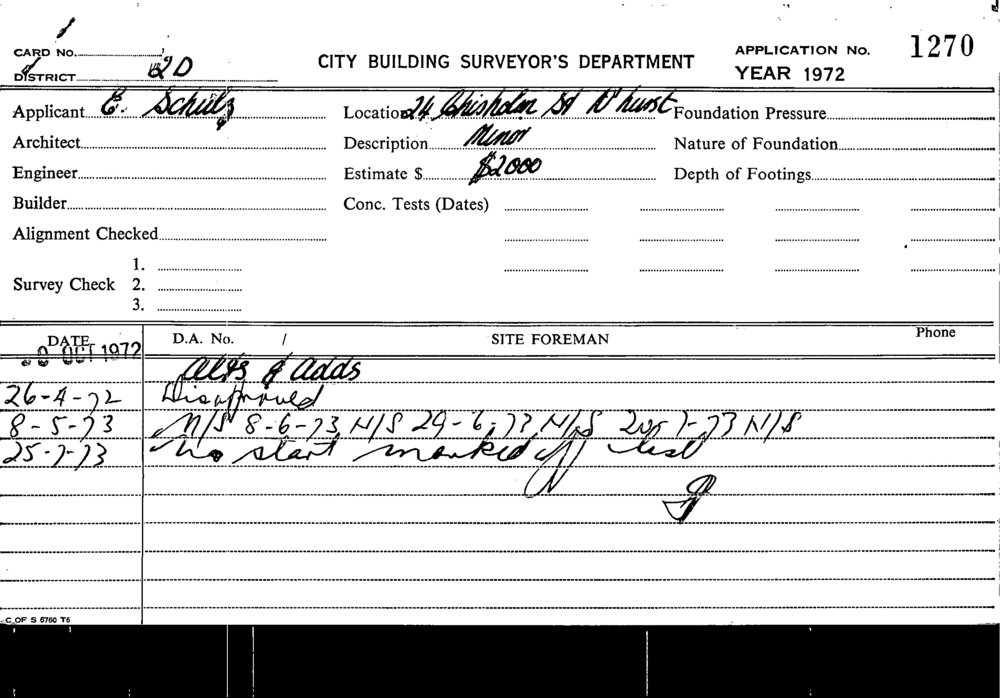 1
CARD No. CITY BUILDING SURVEYOR'S DEPARTMENT APPLICATION No. 1270
DISTRICT 2D YEAR 1972
Applicant E. Schulz Location 24 Chisholm St D'hurst Foundation Pressure
Architect Description Minor Nature of Foundation
Engineer Estimate $ $2000 Depth of Footings
Builder Conc. Tests (Dates)
Alignment Checked
1.
Survey Check 2.
3.
DATE D.A. No. / SITE FOREMAN Phone
OCT 1972
Alts & Adds
26-4-72 Disapproved
8-5-73 N/S 8-6-73 N/S 29-6-73 N/S 20-7-73 N/S
25-7-73 No start marked off list
C OF S 6760 T6